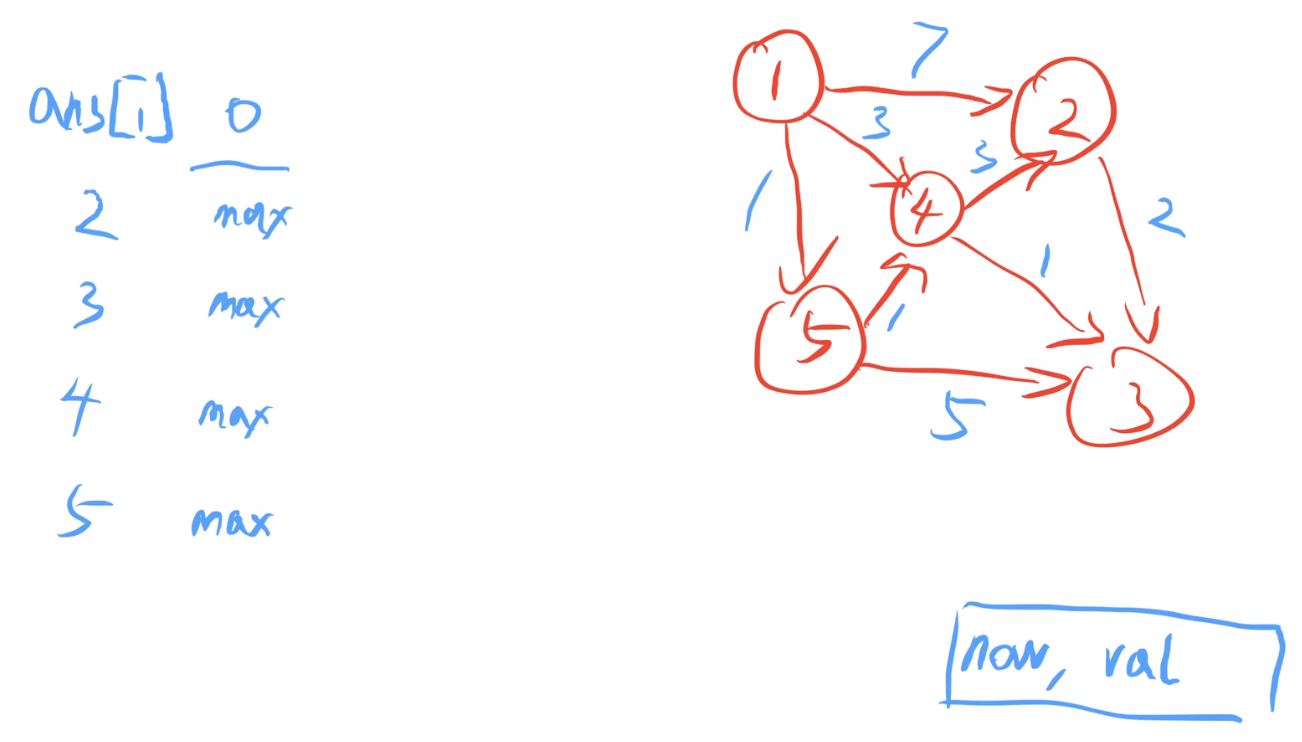 ans[1] 0
2 max
3 max
4 max
5 max
7
1
2
3
3
4
2
1
1
5
1
3
5
now, val